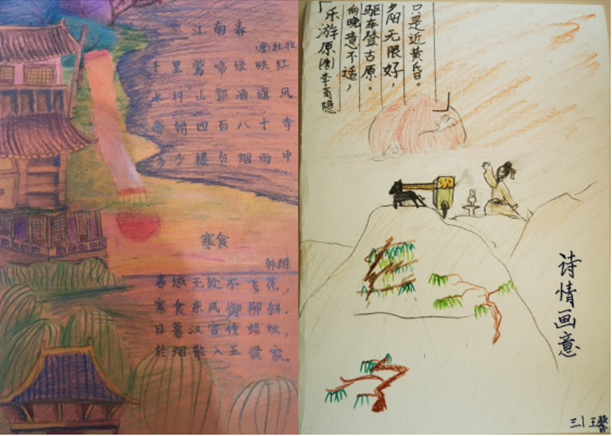 江南春
(唐)杜牧
千里莺啼绿映红
水村山郭酒旗风
南朝四百八十寺
多少楼台烟雨中
寒食
韩翃
春城无处不飞花,
寒食东风御柳斜.
日暮汉宫传蜡烛,
轻烟散入五侯家.
「乐游原(唐)李商隐
向晚意不适,
驱车登古原。
夕阳无限好,
只是近黄昏。
诗情画意